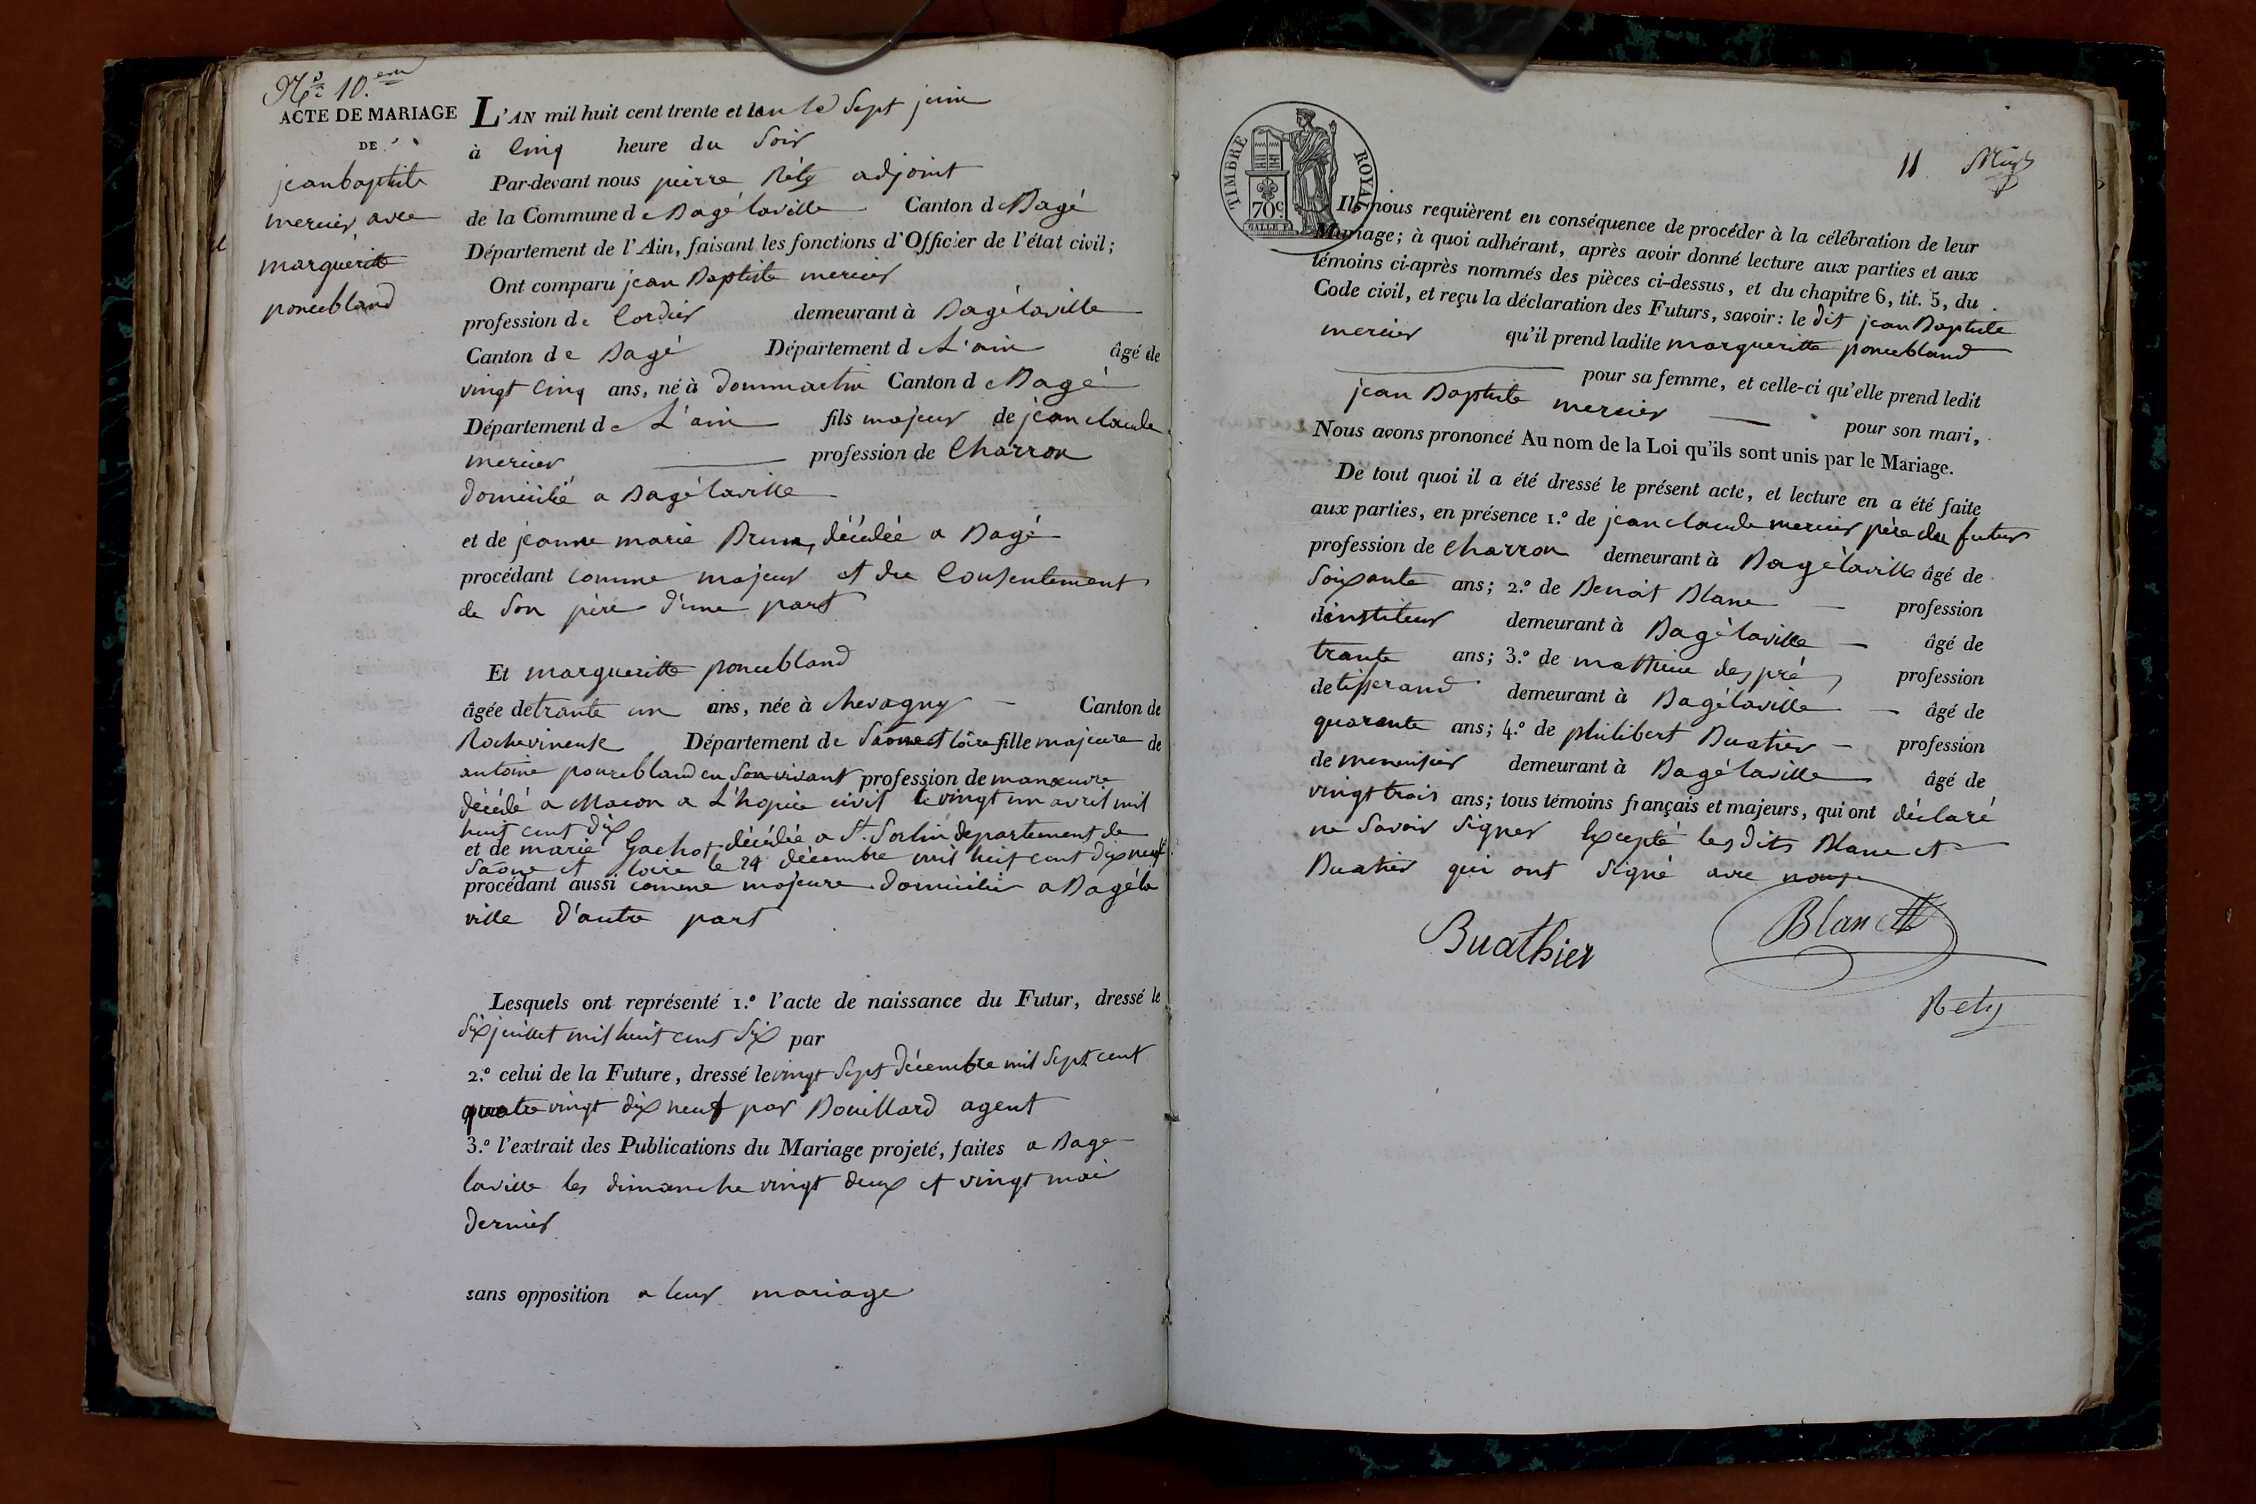 No 10.eme
ACTE DE MARIAGE
DE
jean baptiste
mercier avec
margueritte
poncebland
L'AN mil huit cent trente et un le Sept juin
à Cinq heure du Soir
Par-devant nous pierre Réty adjoint
de la Commune de Bagé laville Canton de Bagé
Département de l'Ain, faisant les fonctions d'Officier de l'état civil;
Ont comparu jean Baptiste mercier
profession de Cordier demeurant à Bagé laville
Canton de Bagé Département de L'ain âgé de
vingt Cinq ans, né à Dommartin Canton de Bagé
Département de L'ain fils majeur de jean claude
mercier profession de Charron
domicilié a Bagé laville
et de jeanne marie Brun, décédée a Bagé
procédant comme majeur et du Consentement
de Son père d'une part
Et margueritte poncebland
âgée de trante un ans, née à chevagny Canton de
Rochevineuse Département de Saone et loire fille majeure de
antoine poncebland en Son vivant profession de manœuvre
décédé a Macon a L'hopice civil le vingt un avril mil
huit cent dix
et de marie Gachot décédée a St. Sorlin département de
Saône et loire le 24 décembre mil huit cent dix neuf
procédant aussi comme majeure domiciliée a Bagé la
ville d'autre part
Lesquels ont représenté 1.º l'acte de naissance du Futur, dressé le
Six juillet mil huit cent Six par
2.º celui de la Future, dressé le vingt Sept décembre mil Sept cent
quatre vingt dix neuf par Bouillard agent
3.º l'extrait des Publications du Mariage projeté, faites a Bagé
laville les dimanche vingt deux et vingt mai
dernier
sans opposition a leur mariage
TIMBRE ROYAL
70c
11
Ils nous requièrent en conséquence de procéder à la célébration de leur
Mariage; à quoi adhérant, après avoir donné lecture aux parties et aux
témoins ci-après nommés des pièces ci-dessus, et du chapitre 6, tit. 5, du
Code civil, et reçu la déclaration des Futurs, savoir: le dit jean Baptiste
mercier qu'il prend ladite margueritte poncebland
pour sa femme, et celle-ci qu'elle prend ledit
jean Baptiste mercier pour son mari,
Nous avons prononcé Au nom de la Loi qu'ils sont unis par le Mariage.
De tout quoi il a été dressé le présent acte, et lecture en a été faite
aux parties, en présence 1.º de jean claude mercier père du futur
profession de Charron demeurant à Bagé laville âgé de
Soixante ans; 2.º de Benoit Blanc profession
d'instituteur demeurant à Bagé laville âgé de
trante ans; 3.º de mathieu des pré profession
de tisserand demeurant à Bagé laville âgé de
quarante ans; 4.º de philibert Buatier profession
de menuisier demeurant à Bagé laville âgé de
vingt trois ans; tous témoins français et majeurs, qui ont déclaré
ne Savoir Signer Excepté les dits Blanc et
Buatier qui ont Signé avec nous
Buathier
Blanc
Rety